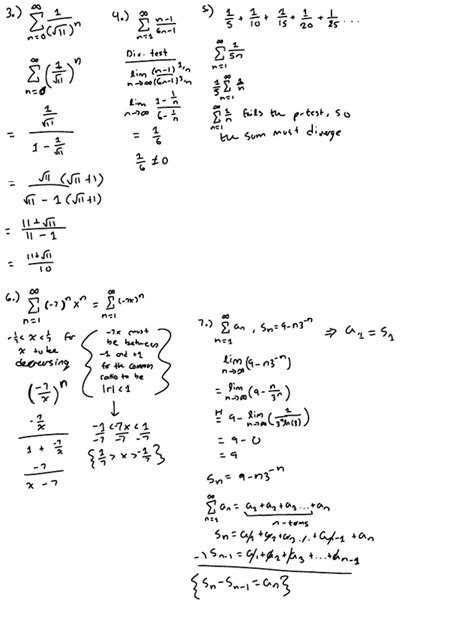 3.) ∞∑n=0 1/(√11)^n
∞∑n=0 (1/√11)^n
= (1/√11)/(1 - 1/√11)
= √11 (√11+1)/√11 - 1 (√11+1)
= (11+√11)/(11 - 1)
= (11+√11)/10
4.) ∞∑n=1 (n-1)/(6n-1)
Div. test
lim n→∞ (n-1) 1/n /(6n-1) 1/n
lim n→∞ (1 - 1/n)/(6 - 1/n)
= 1/6
1/6 ≠ 0
5) 1/5 + 1/10 + 1/15 + 1/20 + 1/25 ...
∞∑n=1 1/5n
1/5 ∞∑n=1 1/n
∞∑n=1 1/n fails the p-test, so
the sum must diverge
6.) ∞∑n=1 (-7)^n x^n = ∞∑n=1 (-7x)^n
-1/7 < x < 1/7 for
x to be
decreasing
(-7/x)^n
(-7/x)/(1 + -7/x)
-7/(x - 7)
{ -7x must
be between
-1 and +1
for the common
ratio to be
|r| < 1 }
↓
-1/-7 < -7x/-7 < 1/-7
{1/7 > x > -1/7}
7.) ∞∑n=1 an, Sn = 9-n3^-n ⇒ a1 = S1
lim n→∞ (9-n3^-n)
= lim n→∞ (9 - n/3^n)
H= 9 - lim n→∞ (1/3^n ln(3))
= 9 - 0
= 9
Sn = 9-n3^-n
∞∑n=1 an = a1 + a2 + a3 ... + an
n-terms
Sn = a1 + a2 + a3 ... + an-1 + an
-) Sn-1 = a1 + a2 + a3 + ... + an-1
{Sn - Sn-1 = an}